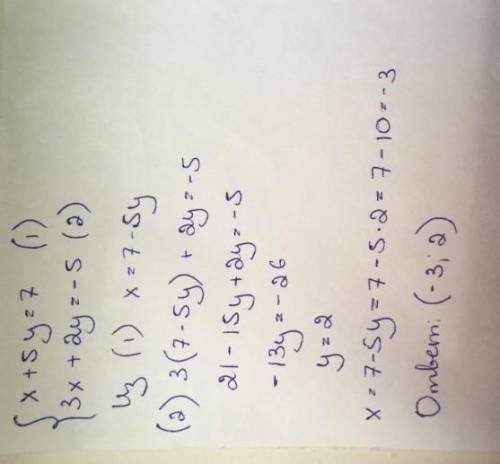 { x + 5y = 7 (1)
3x + 2y = -5 (2)
Из (1) x = 7 - 5y
(2) 3(7 - 5y) + 2y = -5
21 - 15y + 2y = -5
-13y = -26
y = 2
x = 7 - 5y = 7 - 5·2 = 7 - 10 = -3
Ответ: (-3; 2)